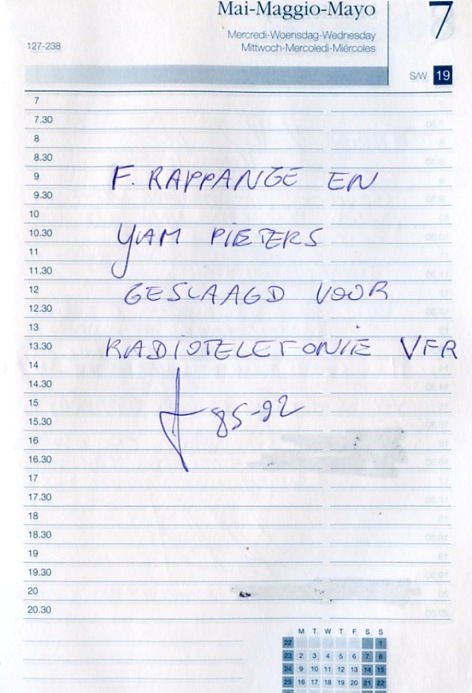 Mai-Maggio-Mayo 7
Mercredi-Woensdag-Wednesday
Mittwoch-Mercoledi-Miércoles
127-238
S/W 19
7
7.30
8
8.30
9
F. RAPPANGE EN
9.30
10
10.30
YVAM PIETERS
11
11.30
12
GESLAAGD VOOR
12.30
13
13.30
RADIOTELEFONIE VFR
14
14.30
15
85-92
15.30
16
16.30
17
17.30
18
18.30
19
19.30
20
20.30
M T W T F S S
22 1
23 2 3 4 5 6 7 8
24 9 10 11 12 13 14 15
25 16 17 18 19 20 21 22